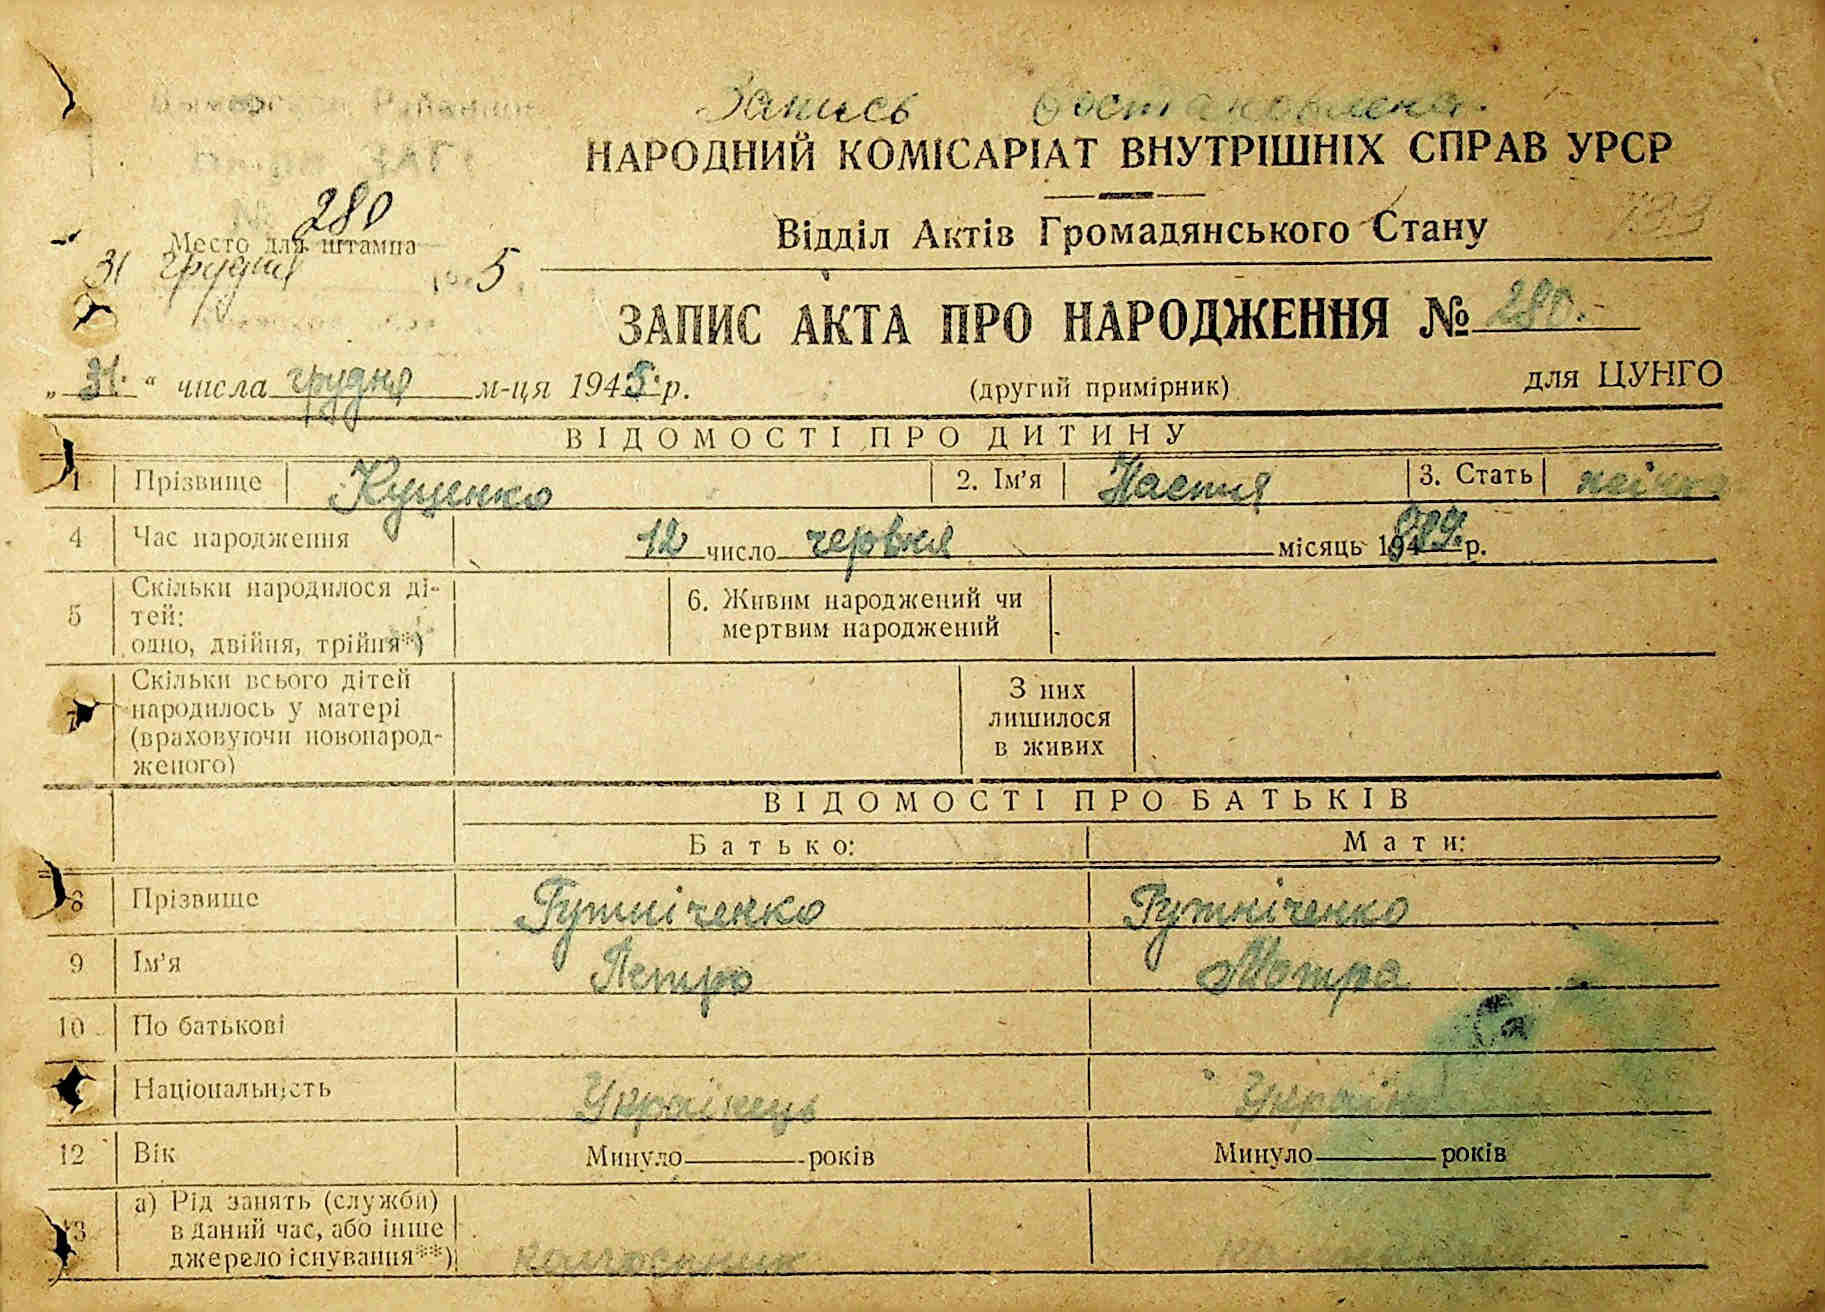 Запись востановлена.
НАРОДНИЙ КОМІСАРІАТ ВНУТРІШНІХ СПРАВ УРСР
133
Відділ Актів Громадянського Стану
280
Место для штампа
31 грудня 5
ЗАПИС АКТА ПРО НАРОДЖЕННЯ № 280.
„31.“ числа грудня м-ця 1945 р. (другий примірник) для ЦУНГО
ВІДОМОСТІ ПРО ДИТИНУ
1 Прізвище Куценко 2. Ім'я Настя 3. Стать жіноча
4 Час народження 12 число червня місяць 194 909. р.
5 Скільки народилося ді-
тей:
одно, двійня, трійня*)
6. Живим народжений чи
мертвим народжений
7 Скільки всього дітей
народилось у матері
(враховуючи новонарод-
женого)
З них
лишилося
в живих
ВІДОМОСТІ ПРО БАТЬКІВ
Батько: Мати:
8 Прізвище Гутніченко Гутніченко
9 Ім'я Петро Мотря
10 По батькові
Національність Українець
12 Вік Минуло років Минуло років
13 а) Рід занять (служби)
в даний час, або інше
джерело існування**)
колгоспник